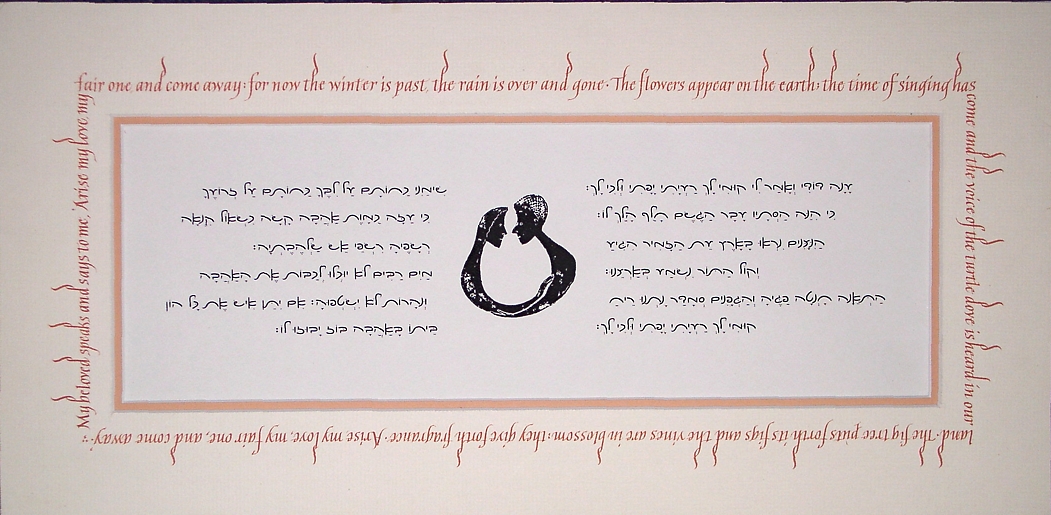 My beloved speaks and says to me, 'Arise my love, my
fair one and come away: for now the winter is past, the rain is over and gone· The flowers appear on the earth: the time of singing has
come and the voice of the turtle dove is heard in our
land· The fig tree puts forth its figs and the vines are in blossom: they give forth fragrance· Arise my love, my fair one, and come away·
ענה דודי ואמר לי קומי לך רעיתי יפתי ולכי לך:
כי הנה הסתיו עבר הגשם חלף הלך לו:
הנצנים נראו בארץ עת הזמיר הגיע
וקול התור נשמע בארצנו:
התאנה חנטה פגיה והגפנים סמדר נתנו ריח
קומי לך רעיתי יפתי ולכי לך:
שימני כחותם על לבך כחותם על זרועך
כי עזה כמות אהבה קשה כשאול קנאה
רשפיה רשפי אש שלהבתיה:
מים רבים לא יוכלו לכבות את האהבה
ונהרות לא ישטפוה: אם יתן איש את כל הון
ביתו באהבה בוז יבוזו לו: